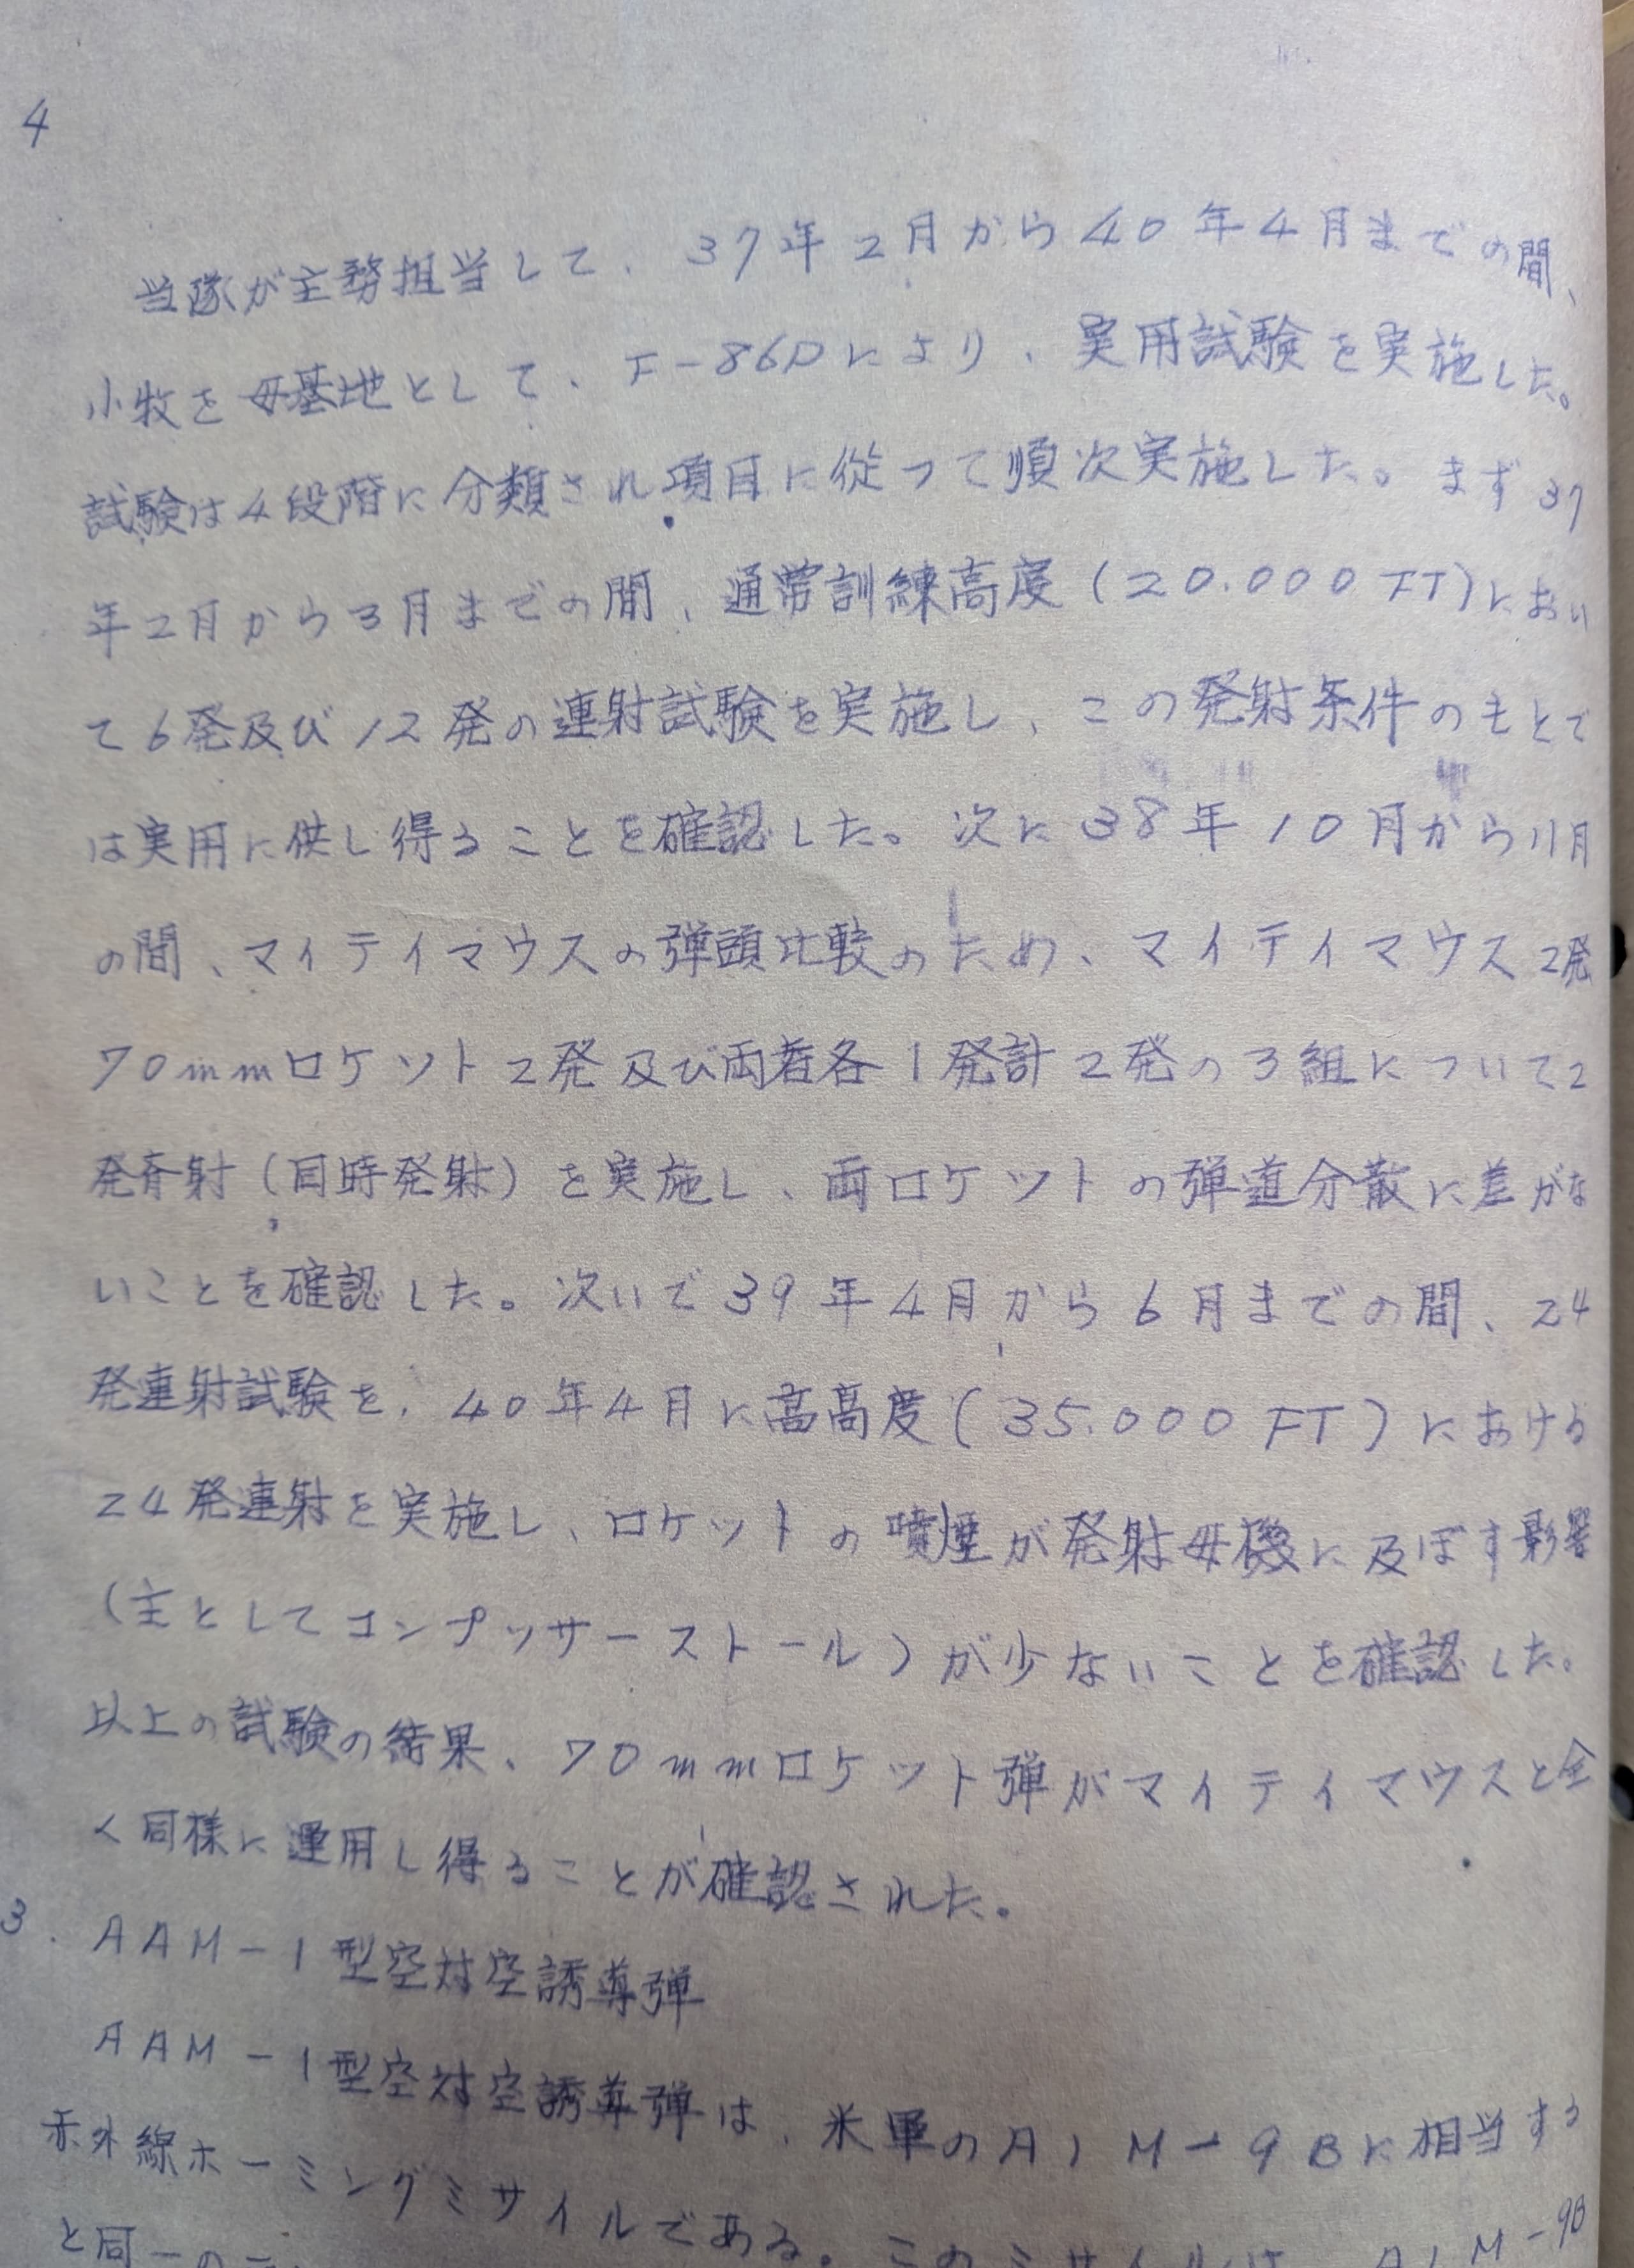 4
当隊が主務担当して、37年2月から40年4月までの間、
小牧を母基地として、F-86Dにより、実用試験を実施した。
試験は4段階に分類され項目に従つて順次実施した。まず37
年2月から3月までの間、通常訓練高度(20.000FT)におい
て6発及び12発の連射試験を実施し、この発射条件のもとで
は実用に供し得ることを確認した。次に38年10月から11月
の間、マイテイマウスの弾頭比較のため、マイテイマウス2発
70mmロケット2発及び両者各1発計2発の3組について2
発斉射(同時発射)を実施し、両ロケットの弾道分散に差がな
いことを確認した。次いで39年4月から6月までの間、24
発連射試験を、40年4月に高高度(35.000FT)における
24発連射を実施し、ロケットの噴煙が発射母機に及ぼす影響
(主としてコンプッサーストール)が少ないことを確認した。
以上の試験の結果、70mmロケット弾がマイテイマウスと全
く同様に運用し得ることが確認された。
3. AAM-1型空対空誘導弾
AAM-1型空対空誘導弾は、米軍のAIM-9Bに相当する
赤外線ホーミングミサイルである。このミサイルは、AIM-9B
と同一の